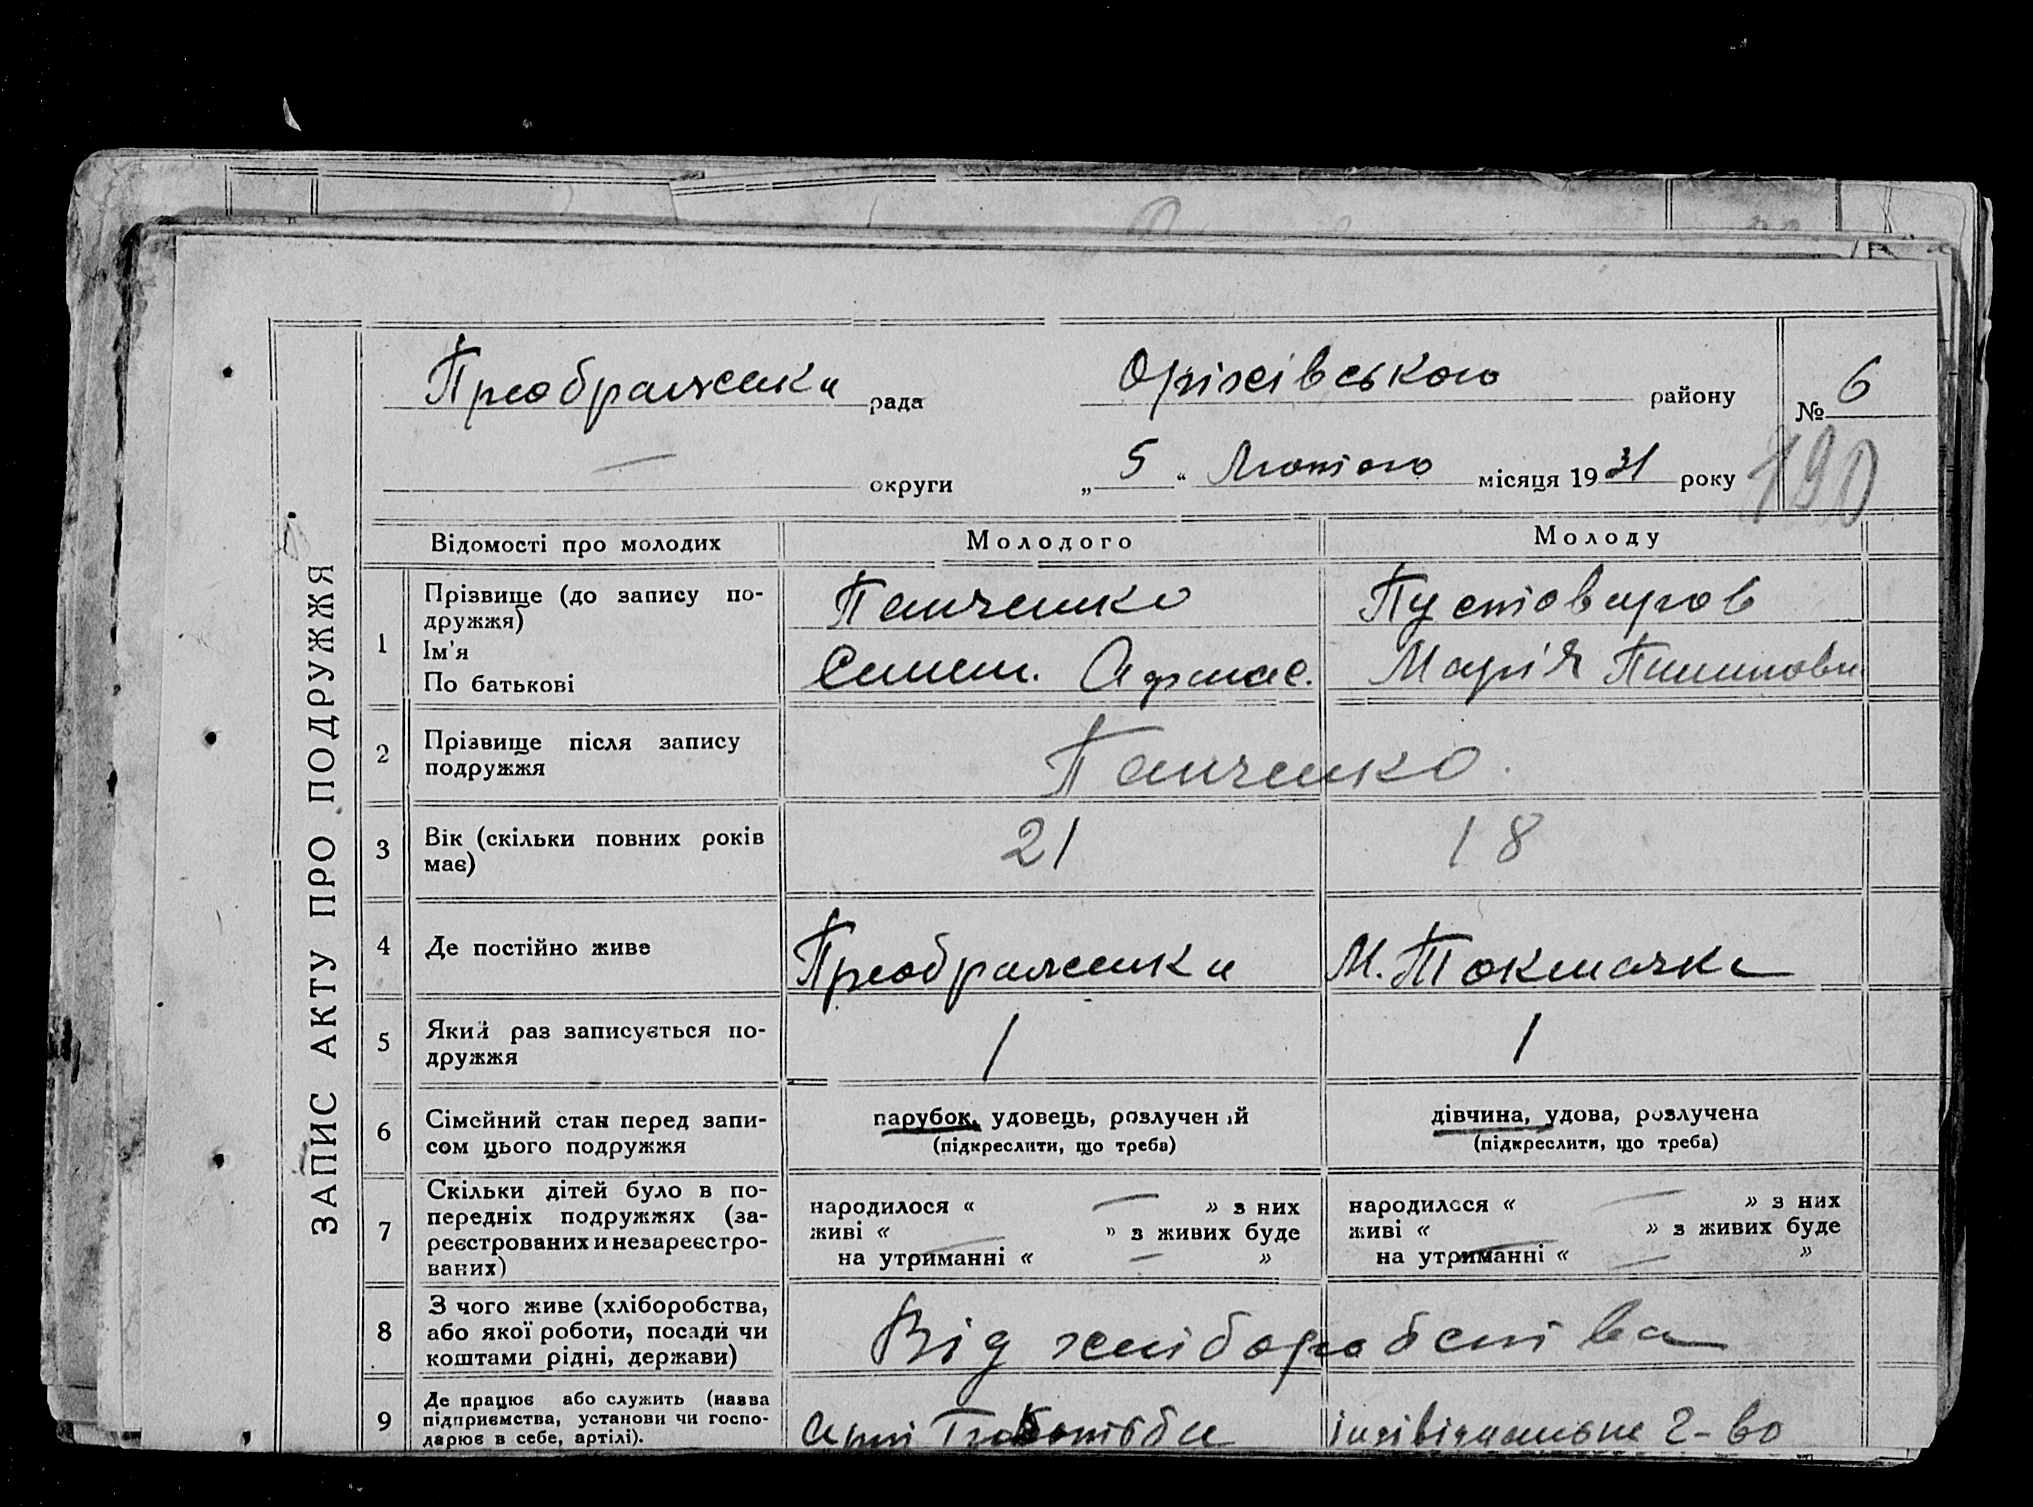 Преображенка рада Оріхівського району № 6
— округи „ 5 “ Лютого місяця 1931 року
190
ЗАПИС АКТУ ПРО ПОДРУЖЖЯ
Відомості про молодих Молодого Молоду
1 Прізвище (до запису по-
дружжя) Панченко Пустоваров
Ім'я
По батькові Семен. Афанас. Марія
2 Прізвище після запису
подружжя Панченко
3 Вік (скільки повних років
має) 21 18
4 Де постійно живе Преображенка М. Токмачка
5 Який раз записується по-
дружжя 1 1
6 Сімейний стан перед запи-
сом цього подружжя
парубок, удовець, розлучений
(підкреслити, що треба)
дівчина, удова, розлучена
(підкреслити, що треба)
7 Скільки дітей було в по-
передніх подружжях (за-
реєстрованих и незареєстро-
ваних)
народилося « — » з них
живі « — » з живих буде
на утриманні « — »
народилося « — » з них
живі « — » з живих буде
на утриманні « — »
8 З чого живе (хліборобства,
або якої роботи, посади чи
коштами рідні, держави)
Від хліборобства
9 Де працює або служить (назва
підприємства, установи чи госпо-
дарює в себе, артілі).
індивідуальне г-во